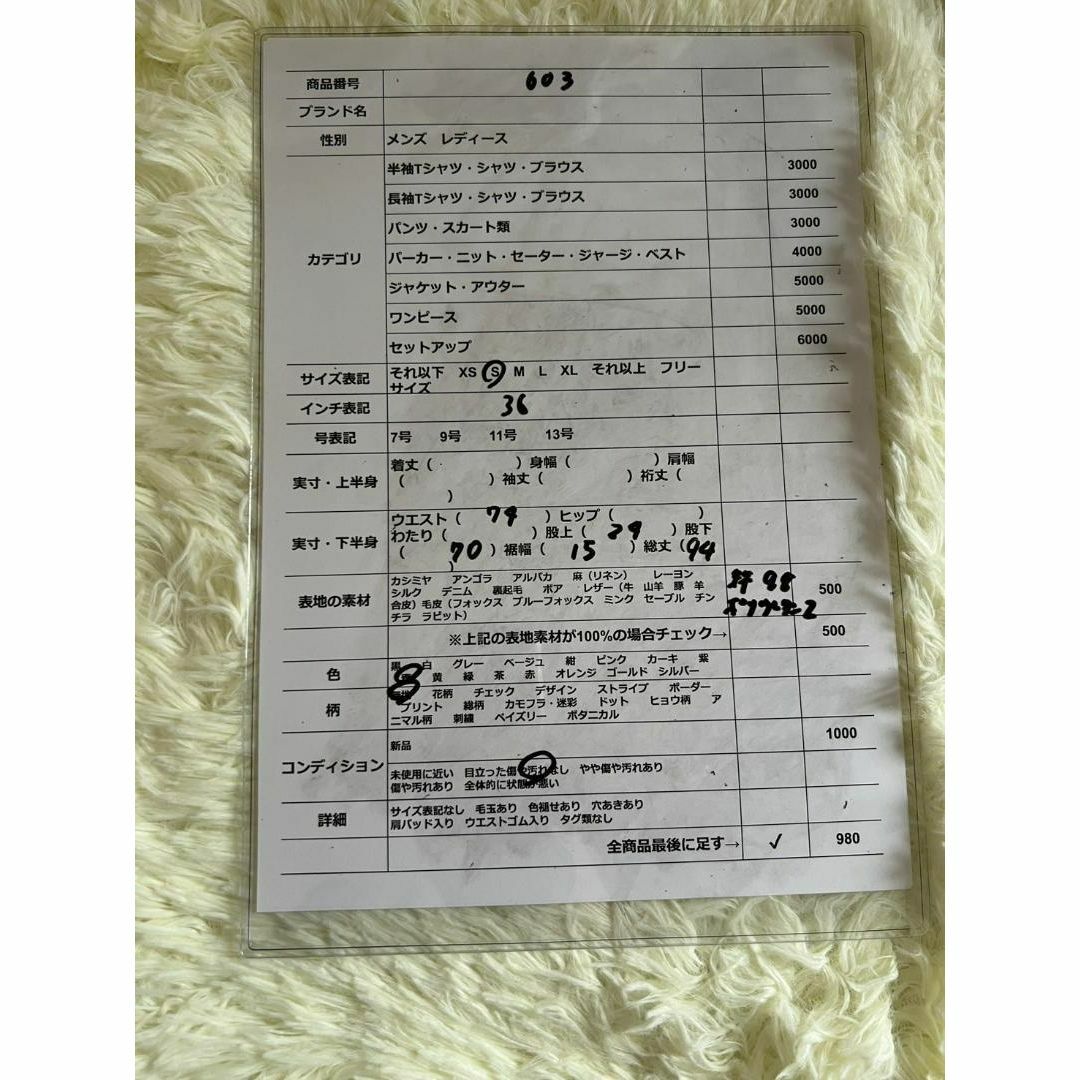 商品番号 603
ブランド名
性別 メンズ レディース
カテゴリ
半袖Tシャツ・シャツ・ブラウス 3000
長袖Tシャツ・シャツ・ブラウス 3000
パンツ・スカート類 3000
パーカー・ニット・セーター・ジャージ・ベスト 4000
ジャケット・アウター 5000
ワンピース 5000
セットアップ 6000
サイズ表記 それ以下 XS S M L XL それ以上 フリー
サイズ
インチ表記 36
号表記 7号 9号 11号 13号
実寸・上半身
着丈( )身幅( )肩幅
( )袖丈( )裄丈(
)
実寸・下半身
ウエスト( 79 )ヒップ( )
わたり( )股上( 29 )股下
( 70 )裾幅( 15 )総丈(94
)
表地の素材
カシミヤ アンゴラ アルパカ 麻(リネン) レーヨン
シルク デニム 裏起毛 ボア レザー(牛 山羊 豚 羊
合皮)毛皮(フォックス ブルーフォックス ミンク セーブル チン
チラ ラビット)
98
2
500
※上記の表地素材が100%の場合チェック→ 500
色
黒 白 グレー ベージュ 紺 ピンク カーキ 紫
黄 緑 茶 赤 オレンジ ゴールド シルバー
柄
花柄 チェック デザイン ストライプ ボーダー
プリント 総柄 カモフラ・迷彩 ドット ヒョウ柄 ア
ニマル柄 刺繍 ペイズリー ボタニカル
コンディション
新品 1000
未使用に近い 目立った傷や汚れなし やや傷や汚れあり
傷や汚れあり 全体的に状態が悪い
詳細
サイズ表記なし 毛玉あり 色褪せあり 穴あきあり
肩パッド入り ウエストゴム入り タグ類なし
全商品最後に足す→ ✓ 980